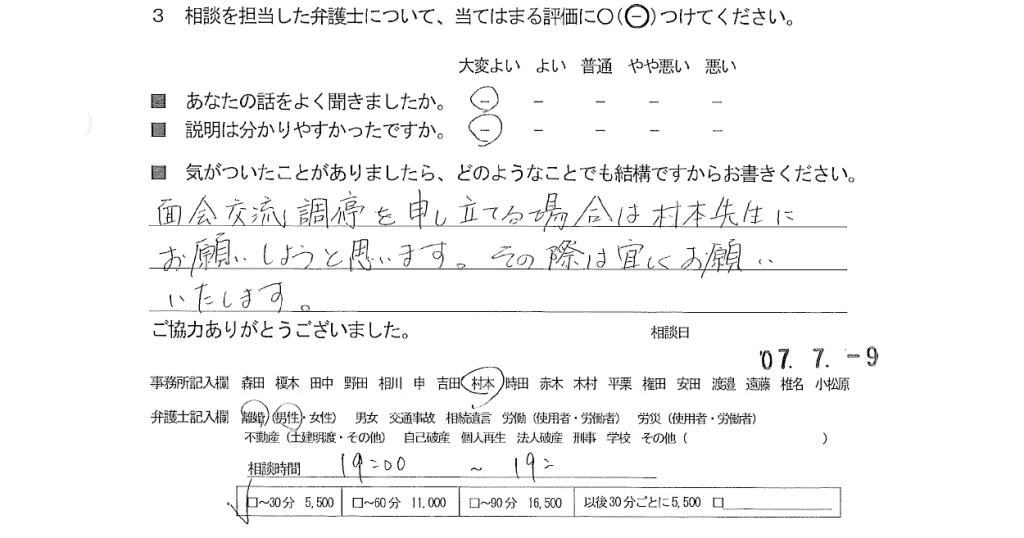 3 相談を担当した弁護士について、当てはまる評価に○(⊖)つけてください。
大変よい よい 普通 やや悪い 悪い
■ あなたの話をよく聞きましたか。 － － － － －
■ 説明は分かりやすかったですか。 － － － － －
■ 気がついたことがありましたら、どのようなことでも結構ですからお書きください。
面会交流調停を申し立てる場合は村本先生に
お願いしようと思います。その際は宜しくお願い
いたします。
ご協力ありがとうございました。 相談日
'07. 7. －9
事務所記入欄 森田 榎本 田中 野田 相川 申 吉田 村本 時田 赤木 木村 平栗 権田 安田 渡邉 遠藤 椎名 小松原
弁護士記入欄 離婚 (男性・女性) 男女 交通事故 相続遺言 労働 (使用者・労働者) 労災 (使用者・労働者)
不動産 (土建明渡・その他) 自己破産 個人再生 法人破産 刑事 学校 その他 ( )
相談時間 19:00 ～ 19:
□～30分 5,500 □～60分 11,000 □～90分 16,500 以後30分ごとに5,500 □